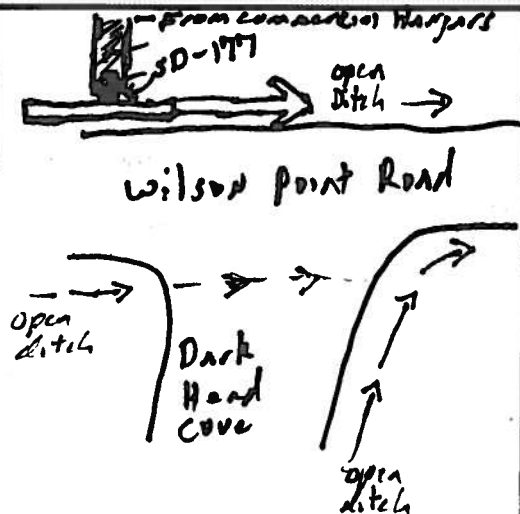 From commercial Hangars
SD-177
open
Ditch
Wilson Point Road
open
ditch
Dark
Head
Cove
open
ditch